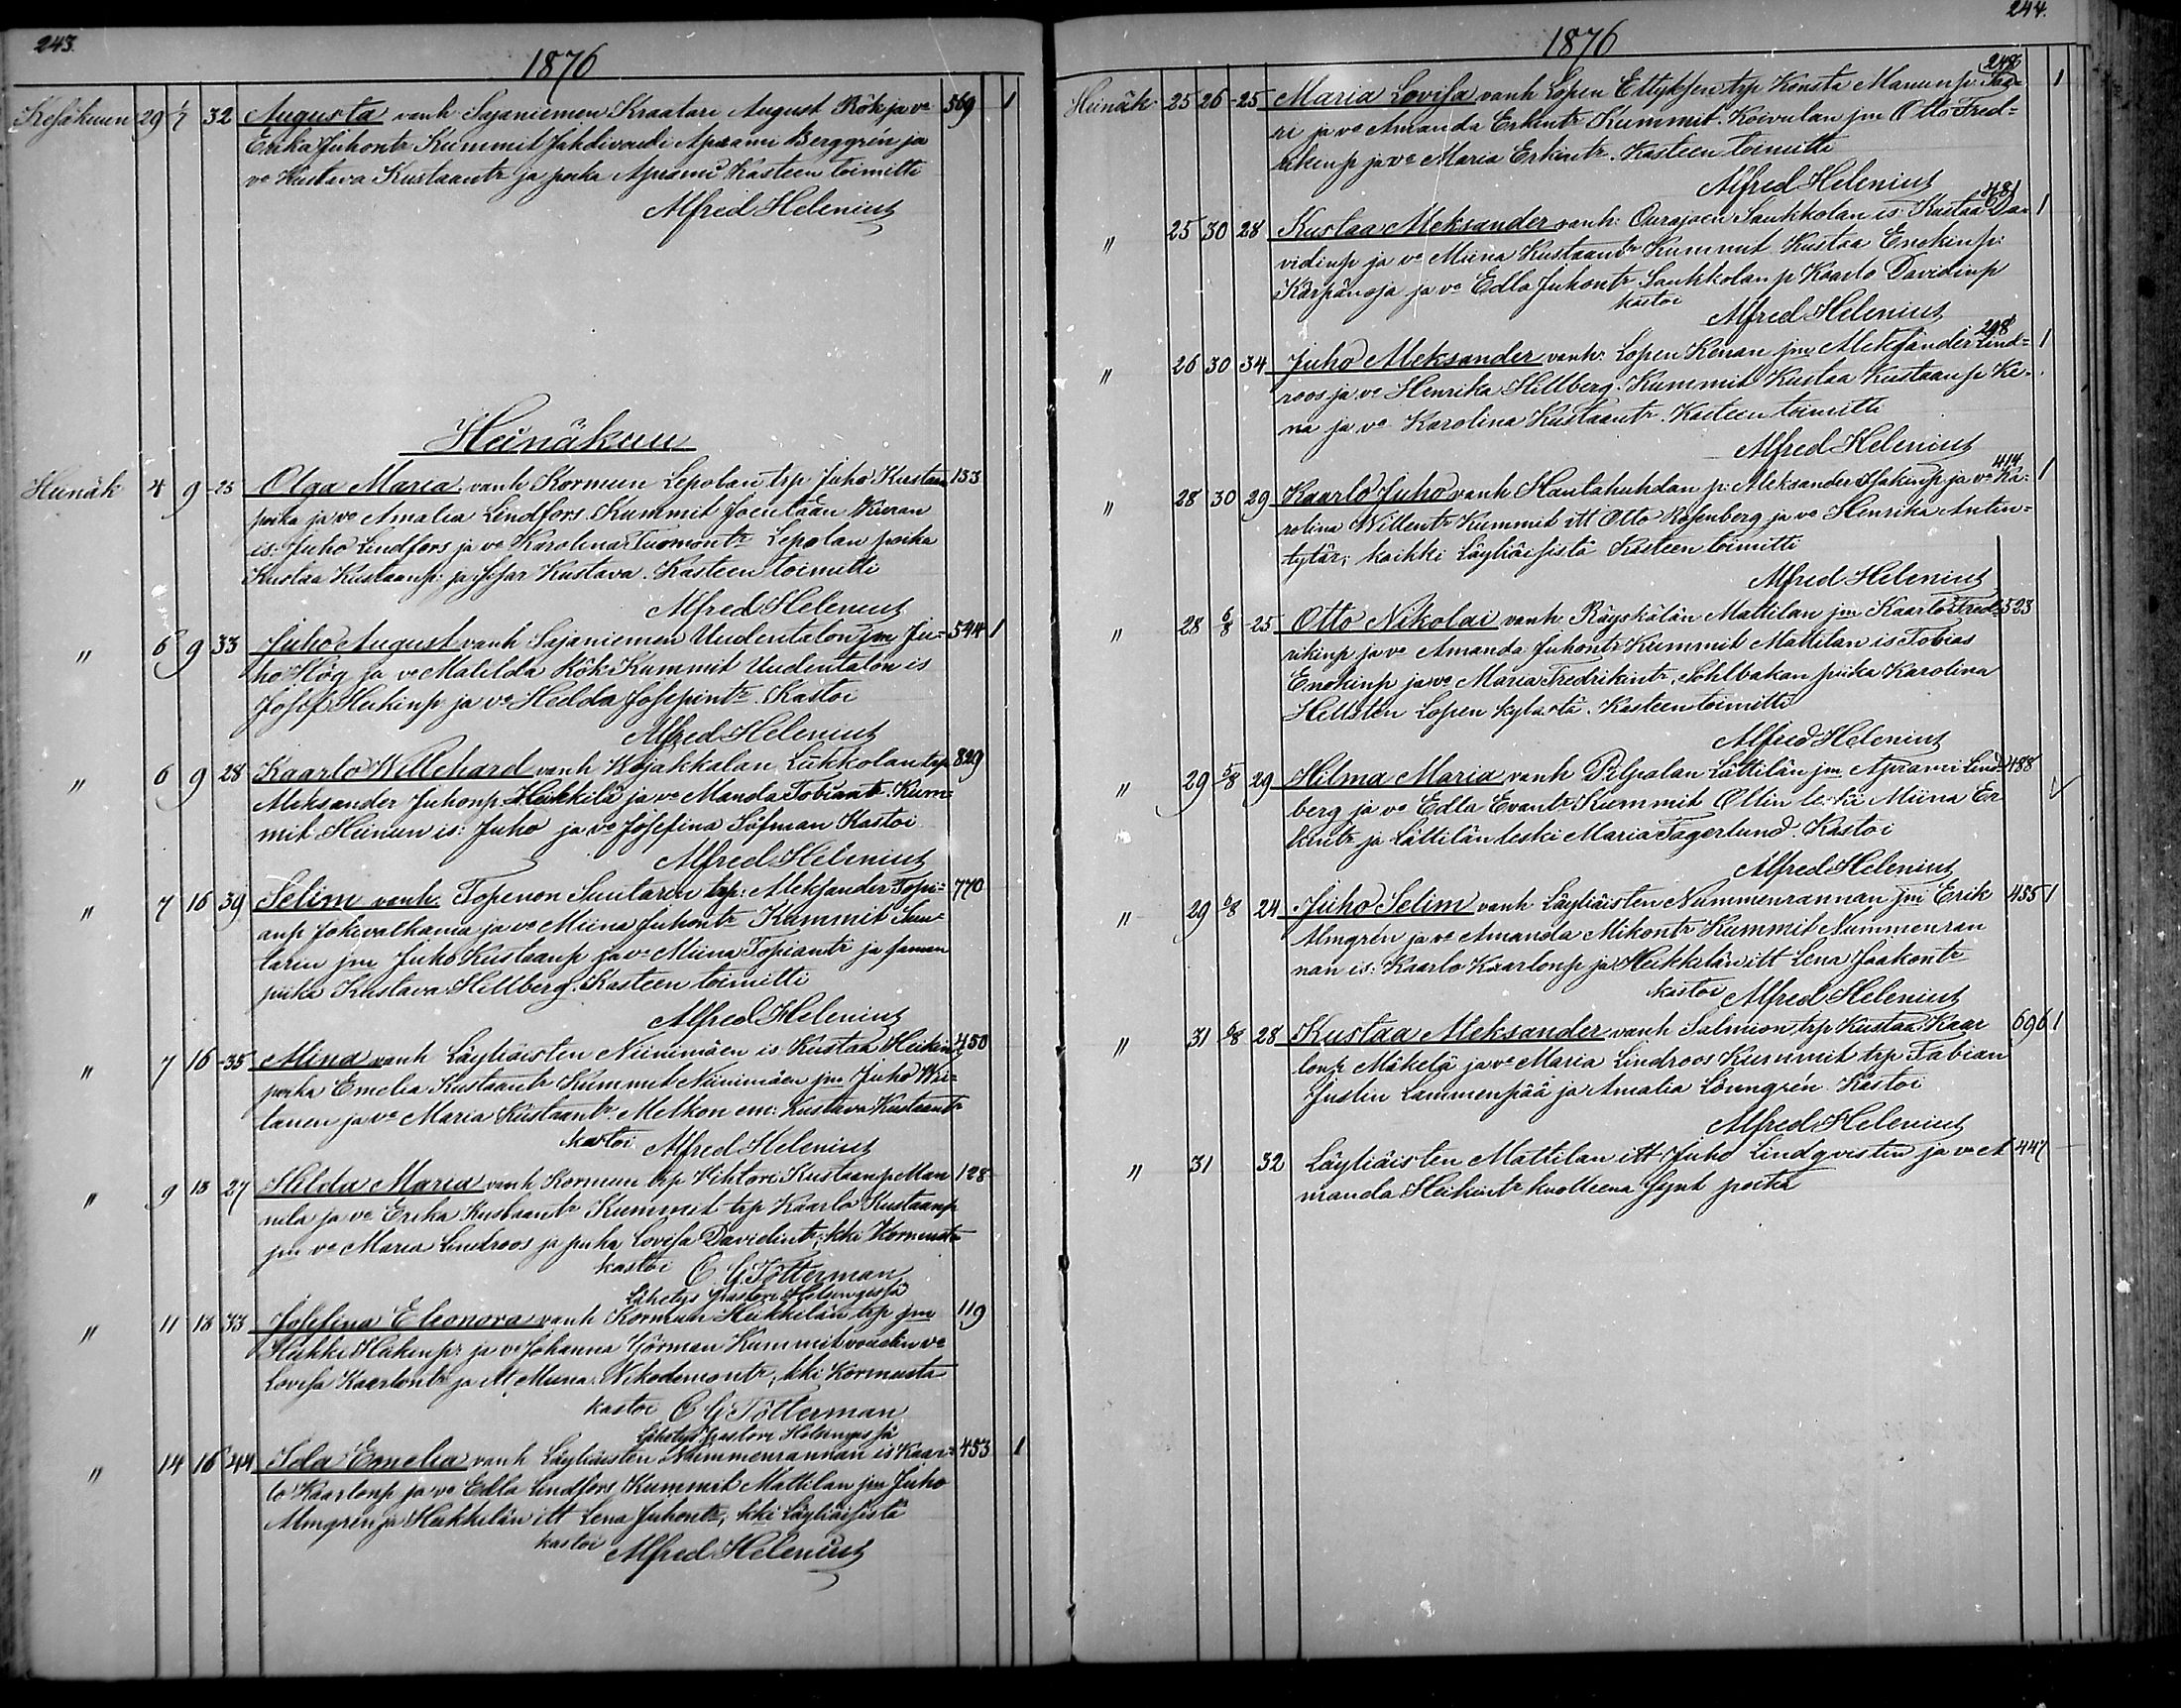 243.
1876
Kesäkuun 29 1/7 32 Augusta vanh Sajaniemen Kraatari August Rök ja vo 569 1
Erika Juhontr Kummit Jahdivouti Aprami Berggrén ja
vo Kustava Kustaantr ja poika Aprami Kasteen toimitti
Alfred Helenius
Heinäkuu
Heinäk 4 9 25 Olga Maria vanh Kormun Lepolan trp Juho Kustaan 133
poika ja vo Amalia Lindfors. Kummit Joentaan Kuran
is: Juho Lindfors ja vo Karolina Tuomontr Lepolan poika
Kustaa Kustaanp: ja sisar Kustava. Kasteen toimitti
Alfred Helenius
" 6 9 33 Juho August vanh Sajaniemen Uudentalon jm Ju= 544 1
ho Hög ja vo Matilda Rök Kummit Uudentalon is
Josef Heikinp ja vo Hedda Josepintr. Kastoi
Alfred Helenius
" 6 9 28 Kaarlo Willehard vanh Wojakkalan Liikkolan trp 829
Aleksander Juhonp. Heikkilä ja vo Manda Tobiantr. Kum=
mit Heinun is: Juho ja vo Josefina Söfman Kastoi
Alfred Helenius
" 7 16 39 Selim vanh. Topenon Suutarin trp: Aleksander Topi= 770
anp Jokivalkama ja vo Miina Juhontr Kummit Suu=
tarin jm Juho Kustaanp ja vo Miina Topiantr ja saman
piika Kustava Hillberg. Kasteen toimitti
Alfred Helenius
" 7 16 35 Mina vanh Läyliäisten Niinimäen is Kustaa Heikin 450
poika Emelia Kustaantr Kummit Niinimäen jm Juho Wi=
tanen ja vo Maria Kustaantr. Metkon em: Kustava Kustaantr
kastoi Alfred Helenius
" 9 18 27 Hilda Maria vanh Kormun trp Vihtori Kustaanp Man 128
nila ja vo Erika Kustaantr Kummit trp Kaarlo Kustaanp
jm vo Maria Lindroos ja piika Lovisa Davidintr; kki Kormusta
kastoi C. G. Tötterman
Lähetys pastori Helsingissä
" 11 18 33 Josefina Eleonora vanh Kormun Heikkilän trp jm 119
Heikki Heikinp: ja vo Johanna Görman Kummit voudin vo
Lovisa Kaarlontr ja itt Miina Nikodemontr; kki Kormusta
kastoi C G Tötterman
Lähetys pastori Helsingissä
" 14 16 44 Ida Emelia vanh Läyliäisten Nummenrannan is Kaar= 453 1
lo Kaarlonp ja vo Edla Lindfors Kummit Mattilan jm Juho
Almgrén ja Heikkilän itt Lena Juhontr; kki Läyliäisistä
kastoi Alfred Helenius
244.
1876
Heinäk 25 26 25 Maria Lovisa vanh Lopen Ettyksen trp Konsta Manunp: 248 1
ri ja vo Amanda Erkintr Kummit. Koivulan jm Otto Fred=
rikinp ja vo Maria Erkintr. Kasteen toimitti
Alfred Helenius
" 25 30 28 Kustaa Aleksander vanh: Ourajoen Saukkolan is Kustaa Da= 481 1
vidinp ja vo Miina Kustaantr Kummit Kustaa Enokinp:
Kärpänoja ja vo Edla Juhontr Saukkolan p Kaarlo Davidinp
kastoi Alfred Helenius
" 26 30 34 Juho Aleksander vanh: Lopen Kenan jm Aleksander Lind= 298 1
roos ja vo Henrika Hillberg. Kummit Kustaa Kustaanp Ke=
na ja vo Karolina Kustaantr. Kasteen toimitti
Alfred Helenius
" 28 30 29 Kaarlo Juho vanh Hautahuhdan p: Aleksander Isakinp ja vo Ka= 414 1
rolina Willentr Kummit itt Otto Rosenberg ja vo Henrika Antin=
tytär; kaikki Läyliäisistä Kasteen toimitti
Alfred Helenius
" 28 6/8 25 Otto Nikolai vanh Räyskälän Mattilan jm Kaarlo Fred= 523
rikinp ja vo Amanda Juhontr Kummit Mattilan is Tobias
Enokinp ja vo Maria Fredrikintr, Sohlbakan piika Karolina
Hellsten Lopen kylästä. Kasteen toimitti
Alfred Helenius
" 29 5/8 29 Hilma Maria vanh Pilpalan Lättilän jm Aprami Lind= 488
berg ja vo Edla Evantr Kummit Ollin leski Miina Er
kintr ja Lättilän leski Maria Fagerlund. Kastoi
Alfred Helenius
" 29 6/8 24 Juho Selim vanh Läyliäisten Nummenrannan jm Erik 455 1
Almgrén ja vo Amanda Mikontr Kummit Nummenran
nan is: Kaarlo Kaarlonp ja Heikkilän itt Lena Jaakontr
kastoi Alfred Helenius
" 31 6/8 28 Kustaa Aleksander vanh Salmion trp Kustaa Kaar 696 1
lonp Mäkelä ja vo Maria Lindroos Kummit trp Fabian
Justin Lammenpää ja Amalia Lönngrén Kastoi
Alfred Helenius
" 31 32 Läyliäisten Mattilan itt Juho Lindqvistin ja vo A 447
manda Heikintr kuolleena synt poika